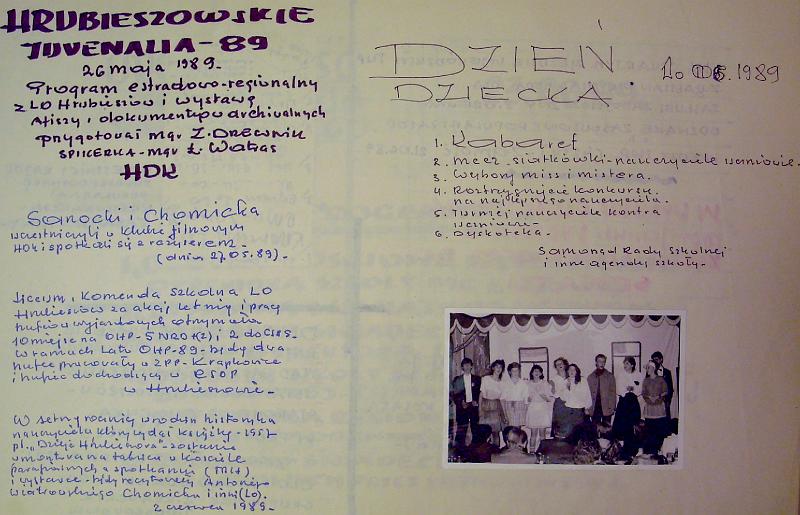 HRUBIESZOWSKIE
JUVENALIA-89
26 maja 1989.
Program estradowo-regionalny
z LO Hrubieszów i wystawę
Afiszy i dokumentów archiwalnych
przygotował mgr Z. DREWNIK
SPIKERKA-mgr Ł. Watras
HDK
Sarocki i Chomicka
uczestniczyli w klubie filmowym
HDK i spotkali się z reżyserem.
(dnia 27.05.89).
Liceum i Komenda Szkolna LO
Hrubieszów za akcję letnią i pracy
hufców wyjazdowych otrzymała
10 miejsc na OHP-5 NRD i 2 do CSRS.
W ramach Lata OHP-89-będą dwa
hufce pracowały w ZPP-Krapkowice
i hufiec dochodzący w
w Hrubieszowie.
W setną rocznicę urodzin historyka
nauczyciela który wydał książkę-1957
pt. „Dzieje Hrubieszowa" zostanie
wmontowana tablica w kościele
parafialnym a spotkanie
i wystawa-będą recytowały Antoniego
Wiatrowskiego Chomicka i inni (LO).
2 czerwca 1989.
DZIEŃ
DZIECKA. 1. 06. 1989
1. Kabaret
2. mecz siatkówki-nauczyciele uczniowie.
3. Wybory miss i mistera.
4. Rozstrzygnięcie konkursu
na najlepszego nauczyciela.
5. Turniej nauczyciele kontra
uczniowie.
6. Dyskoteka.
Samorząd Rady Szkolnej
i inne agendy szkoły.